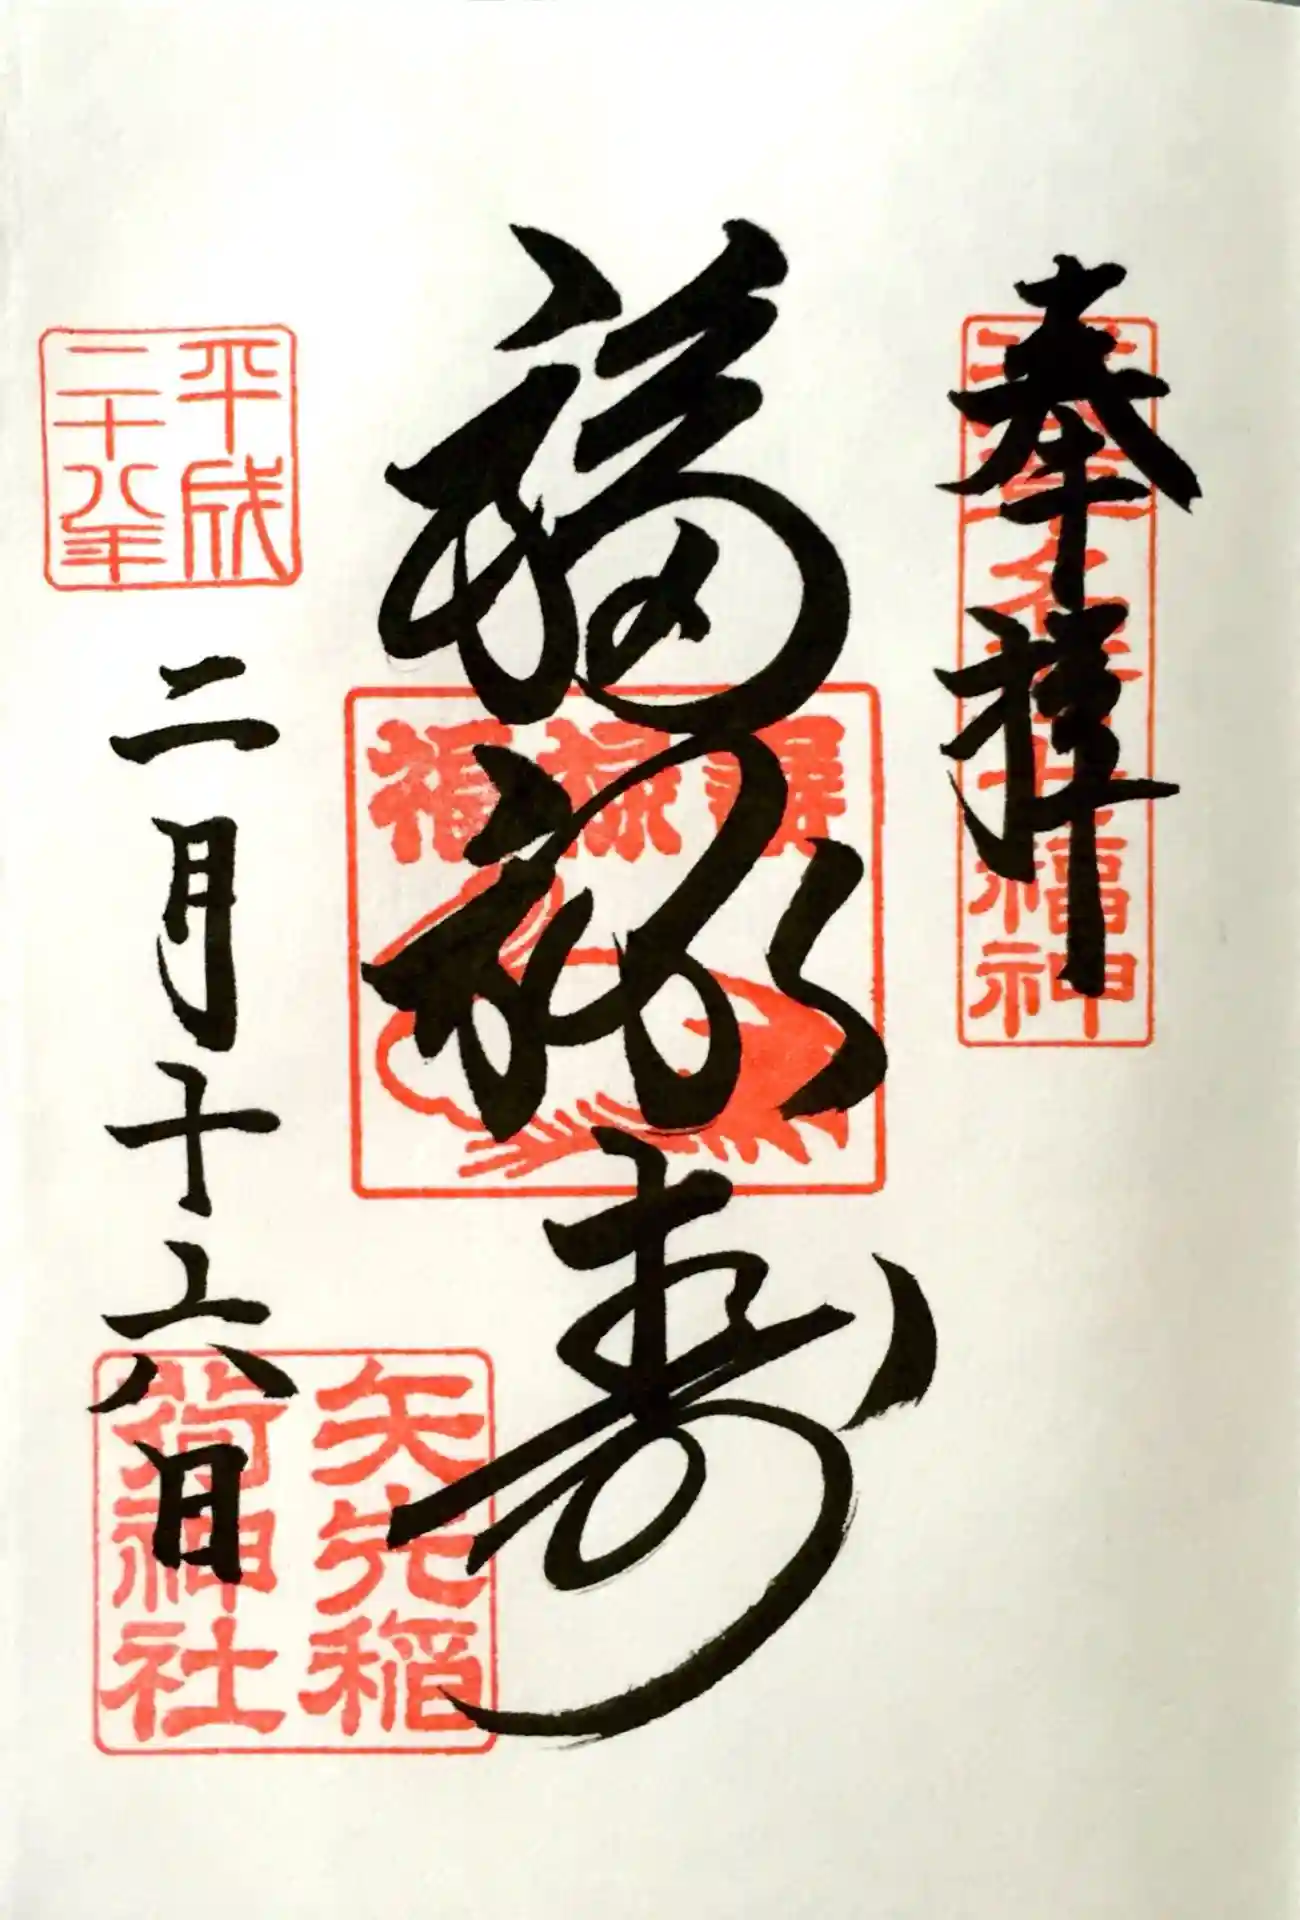 奉拝
浅草名所七福神
福禄寿
福禄寿
平成
二十八年
二月十六日
矢先稲
荷神社